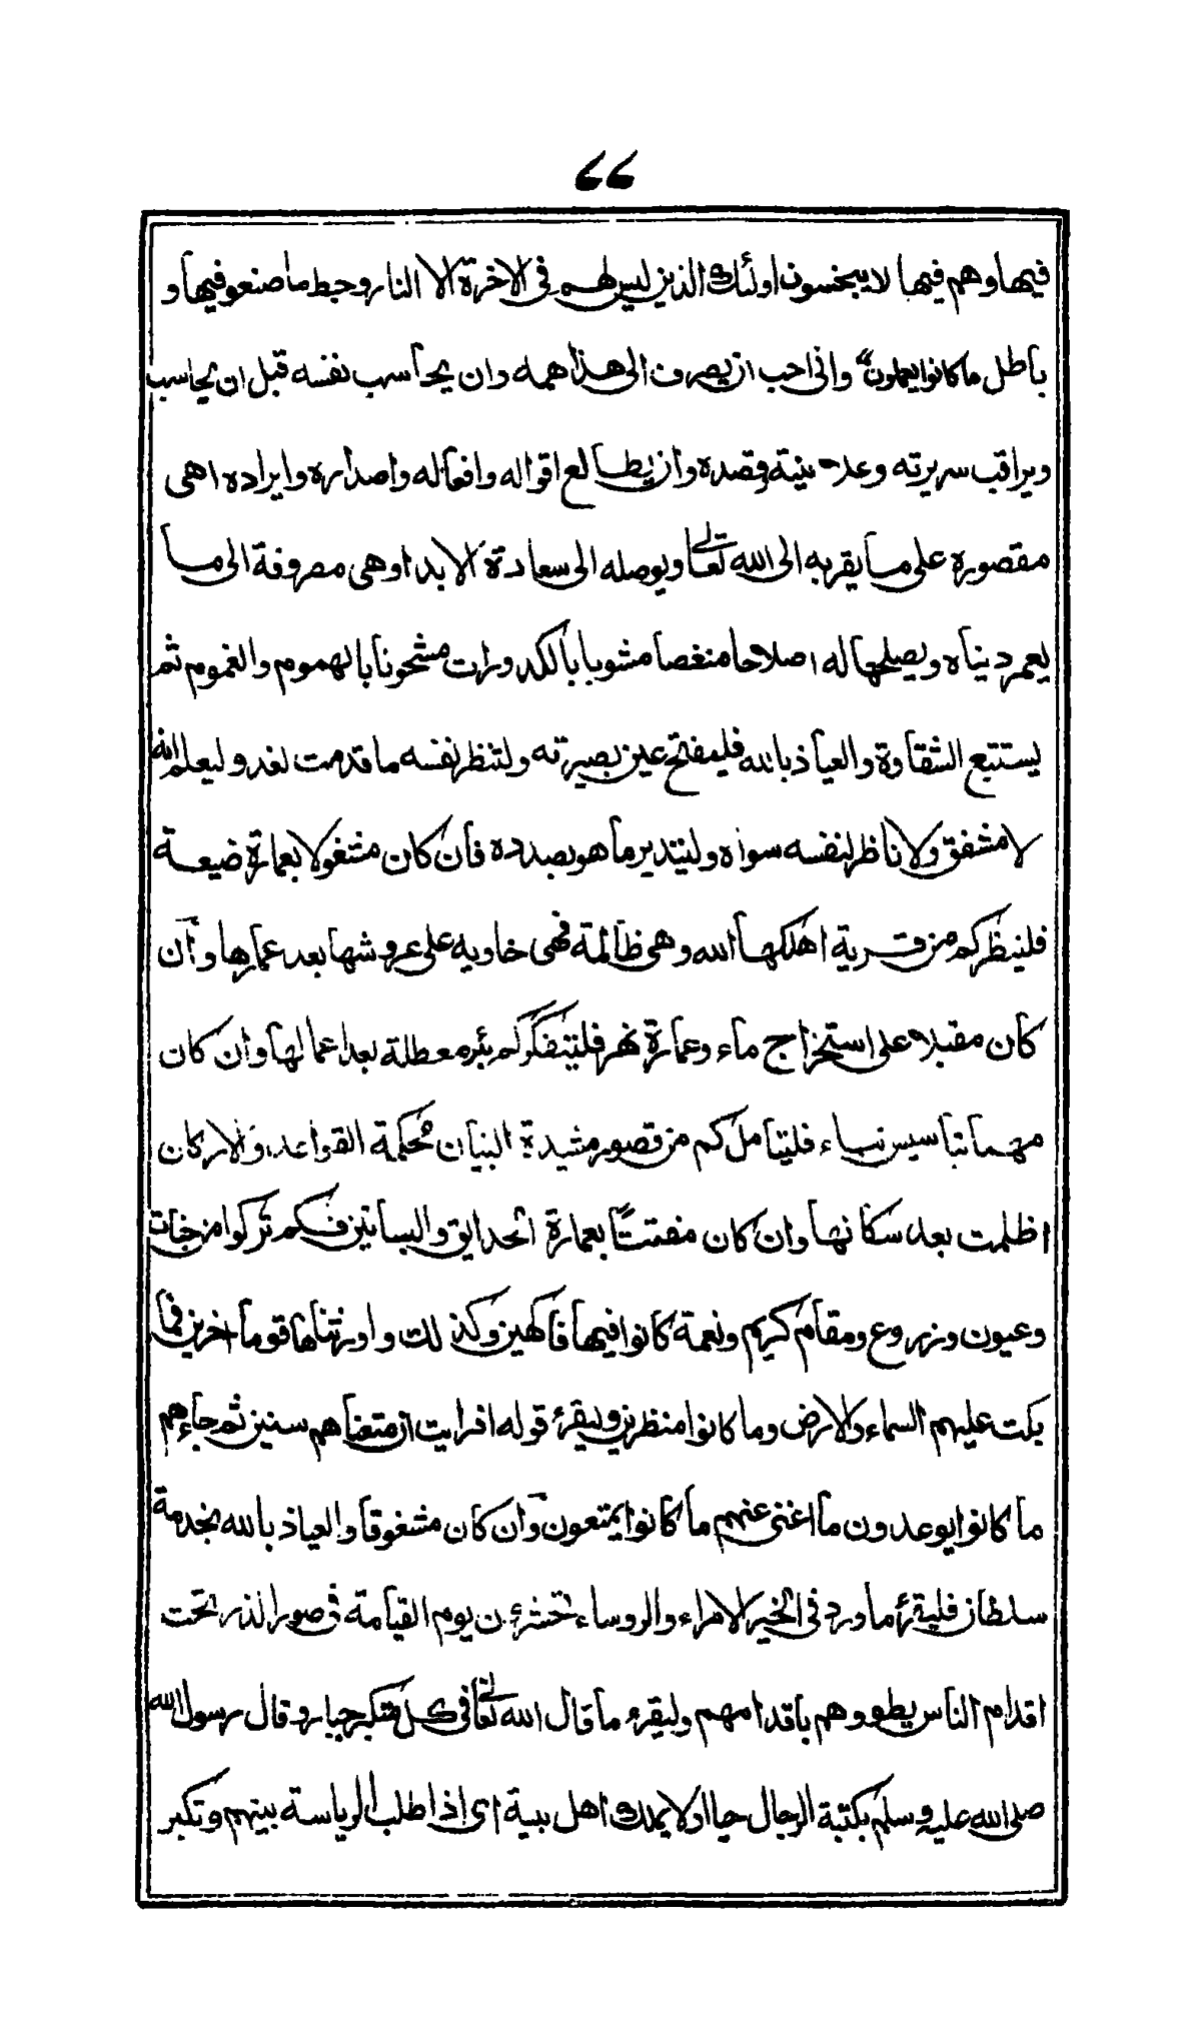 ٦٦
فيها وهم فيها لا يبخسون اولئك الذين ليس لهم في الاخرة الا النار وحبط ما صنعو فيها و
باطل ما كانوا يعملون" واني احب ان يصرف الى هذا همه وان يحاسب نفسه قبل ان يحاسب
ويراقب سريرته وعلانيته وقصده وان يطالع اقواله وافعاله واصداره وايراده اهى
مقصورة على ما يقربه الى الله تعالى ويوصله الى سعادة الابد اوهى مصروفة الى ما
يعمر ديناه ويصلحها له اصلاحا منغصا مشوبا بالكدورات مشحونا بالهموم والغموم ثم
يستتبع الشقاوة والعياذ بالله فليفتح عين بصيرته ولتنظر نفسه ما قدمت لغد وليعلم انه
لا مشفق ولا ناظر لنفسه سواه وليتدبر ما هو بصدده فان كان مشغولا بعمارة ضيعة
فلينظر كم من قرية اهلكها الله وهى ظالمة فهى خاويه على عروشها بعد عمارها وان
كان مقبلا على استخراج ماء وعمارة نهر فليتفكر كم بئر معطلة بعد اعمالها وان كان
مهما بتاسيس بناء فليتامل كم من قصور مشيدة البنيان محكمة القواعد والاركان
اظلمت بعد سكانها وان كان مفتتنا بعمارة الحدايق والبساتين فكم تركوا من جنات
وعيون وزروع ومقام كريم ونعمة كانوا فيها فاكهين وكذلك واورثناها قوما اخرين فما
بكت عليهم السماء والارض وما كانوا منظرين وليقرء قوله افرايت ان متعناهم سنين ثم جاءهم
ما كانوا يوعدون ما اغنى عنهم ما كانوا يمتعون وان كان مشغوفا والعياذ بالله بخدمة
سلطان فليقرأ ما ورد في الخبر الامراء والروساء تحشرون يوم القيامة في صور الذر تحت
اقدام الناس يطووهم باقدامهم وليقرء ما قال الله تعالى في كل متكبر جبار وقال رسول الله
صلى الله عليه وسلم يكتبة الرجال جبارا ولا يملك اهل بيته اى اذا طلب الرياسة بينهم وتكبر